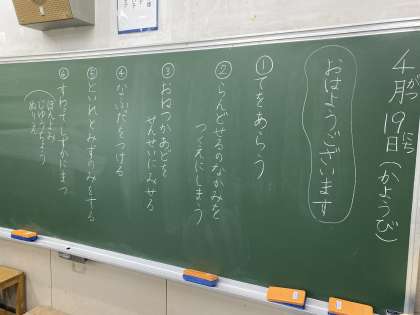 4月19日(かようび)
がつ にち
おはようございます
①てをあらう
②らんどせるのなかみを
つくえにしまう
③おねつかあどを
せんせいにみせる
④なふだをつける
⑤といれとみずのみをする
⑥すわってしずかにまつ
(ほんよみ
じゆうちょう
ぬりえ)